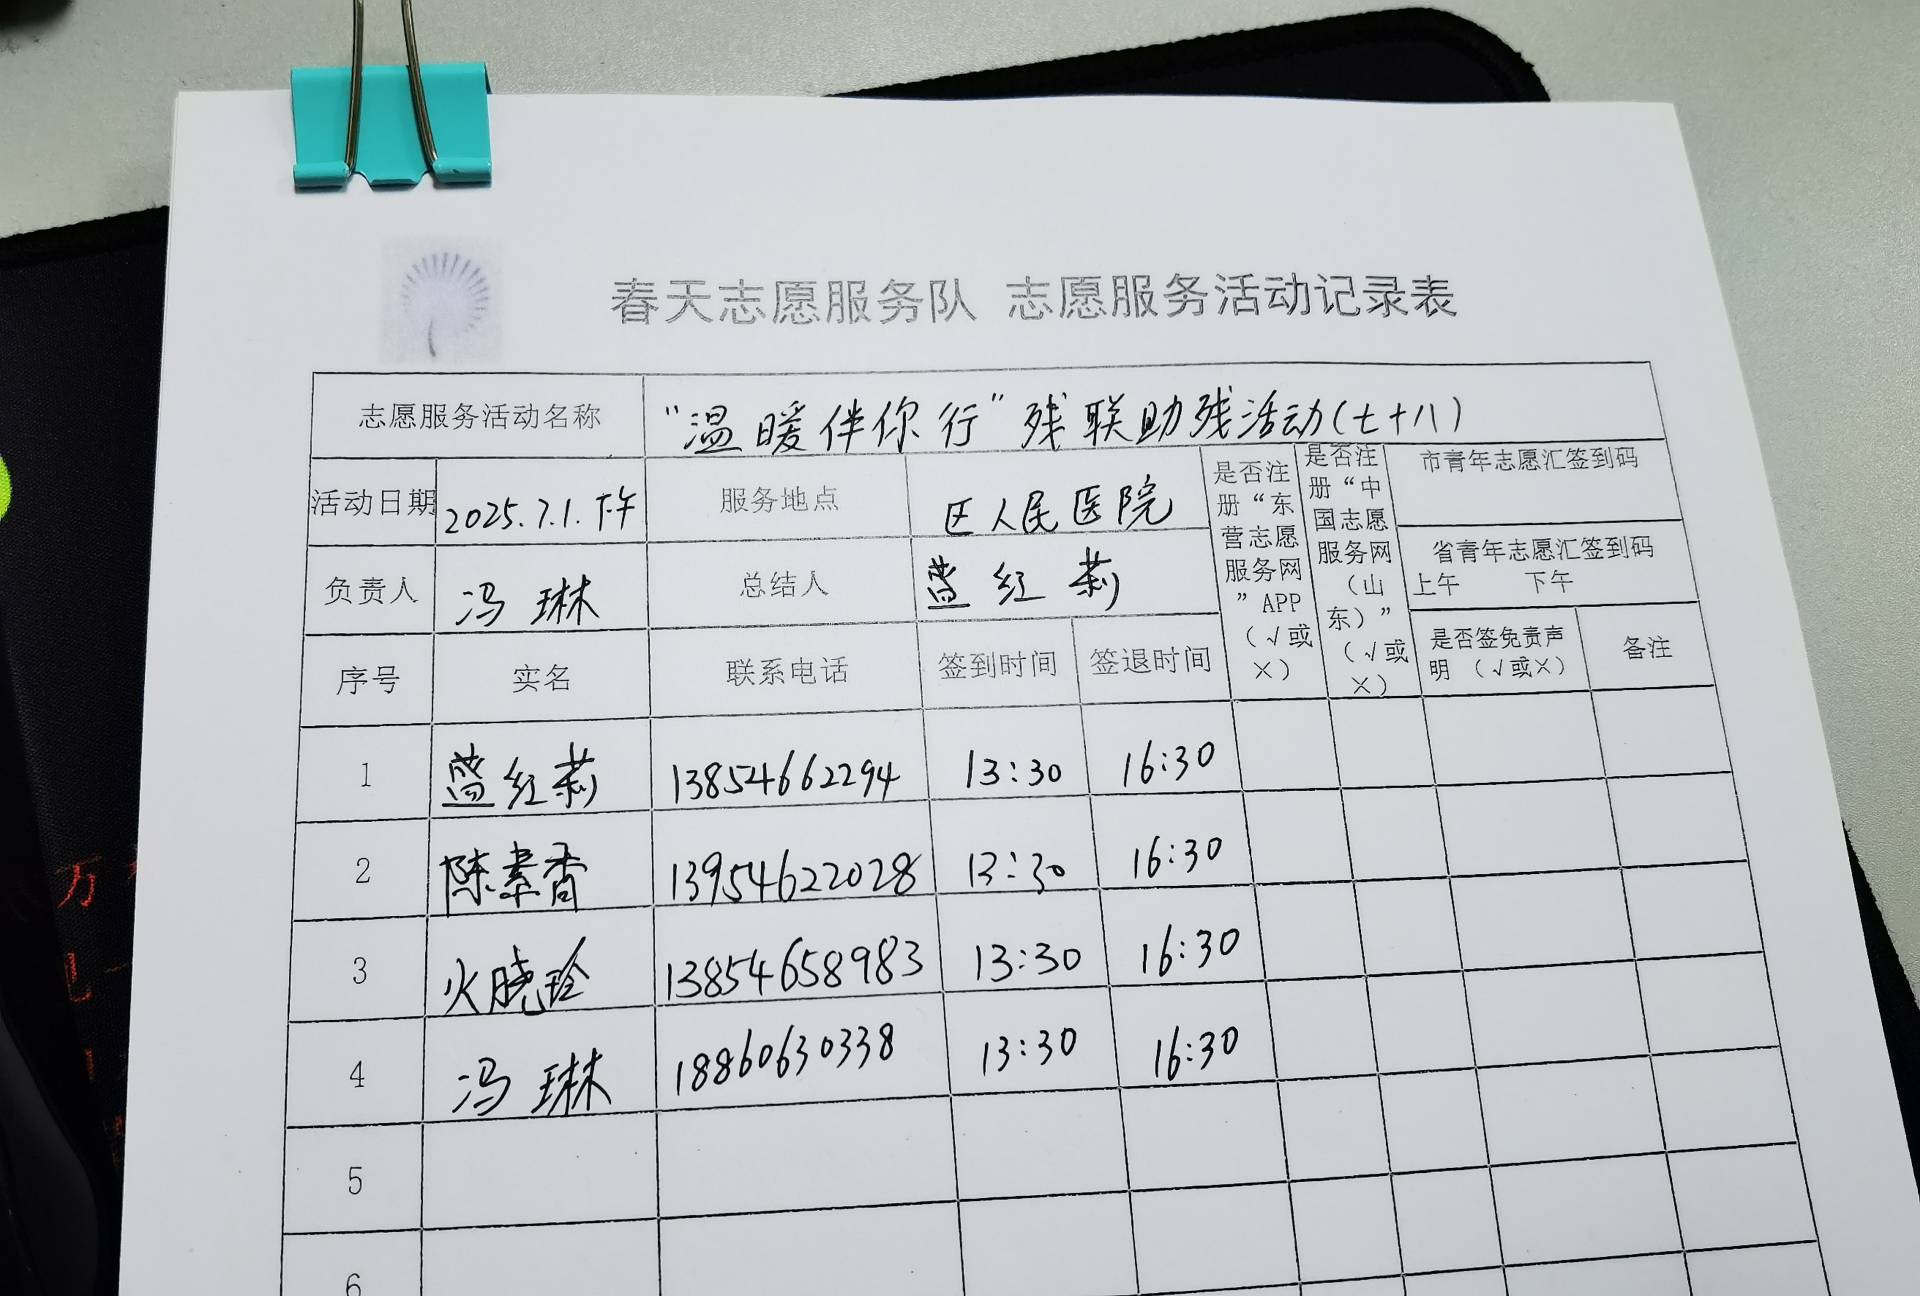 春天志愿服务队 志愿服务活动记录表
志愿服务活动名称 “温暖伴你行”残联助残活动(七十八)
活动日期 2025.7.1.下午 服务地点 区人民医院
负责人 冯琳 总结人 蓝红莉
是否注册“东营志愿服务网”APP（√或×）
是否注册“中国志愿服务网（山东）”（√或×）
市青年志愿汇签到码
省青年志愿汇签到码
上午 下午
序号 实名 联系电话 签到时间 签退时间 是否签免责声明（√或×） 备注
1 蓝红莉 13854662294 13:30 16:30
2 陈素香 13954622028 13:30 16:30
3 火晓玲 13854658983 13:30 16:30
4 冯琳 18860630338 13:30 16:30
5
6
万